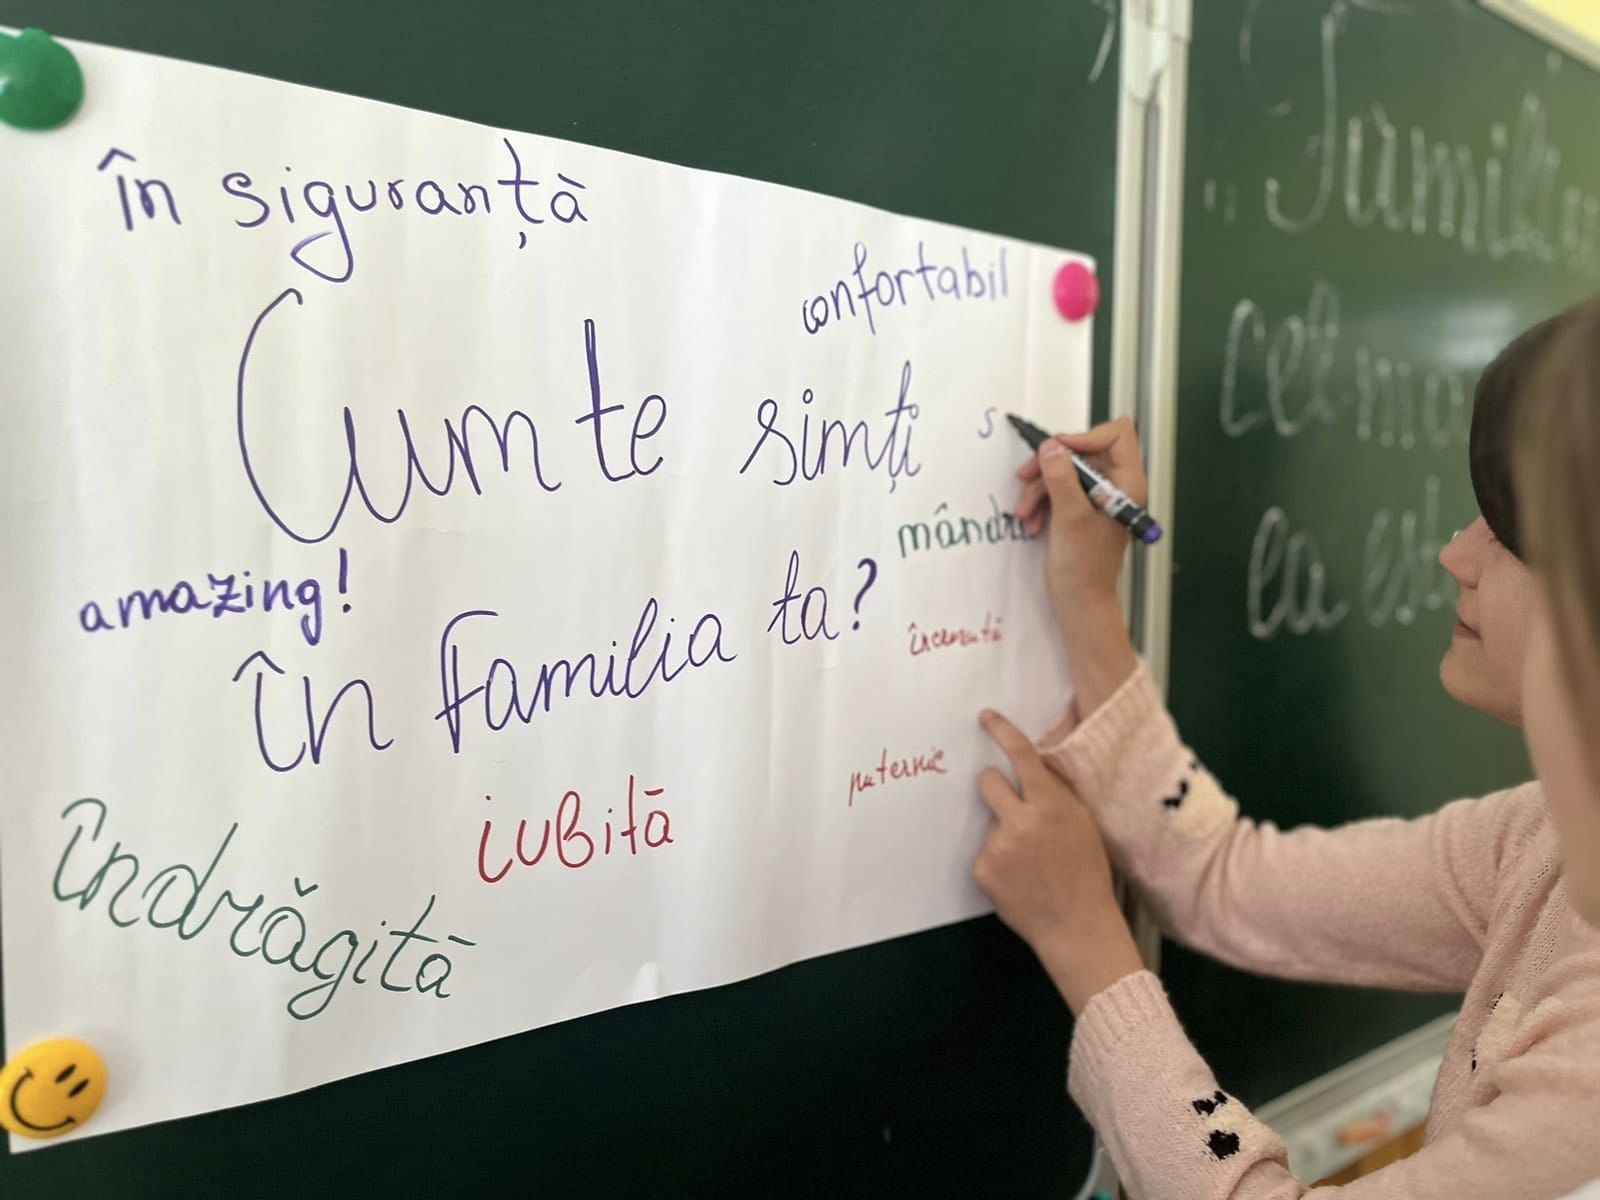 în siguranță
confortabil
Cum te simți
s
mândr
amazing!
în familia ta?
puternic
iubită
îndrăgită
"Famili
cel ma
ea est